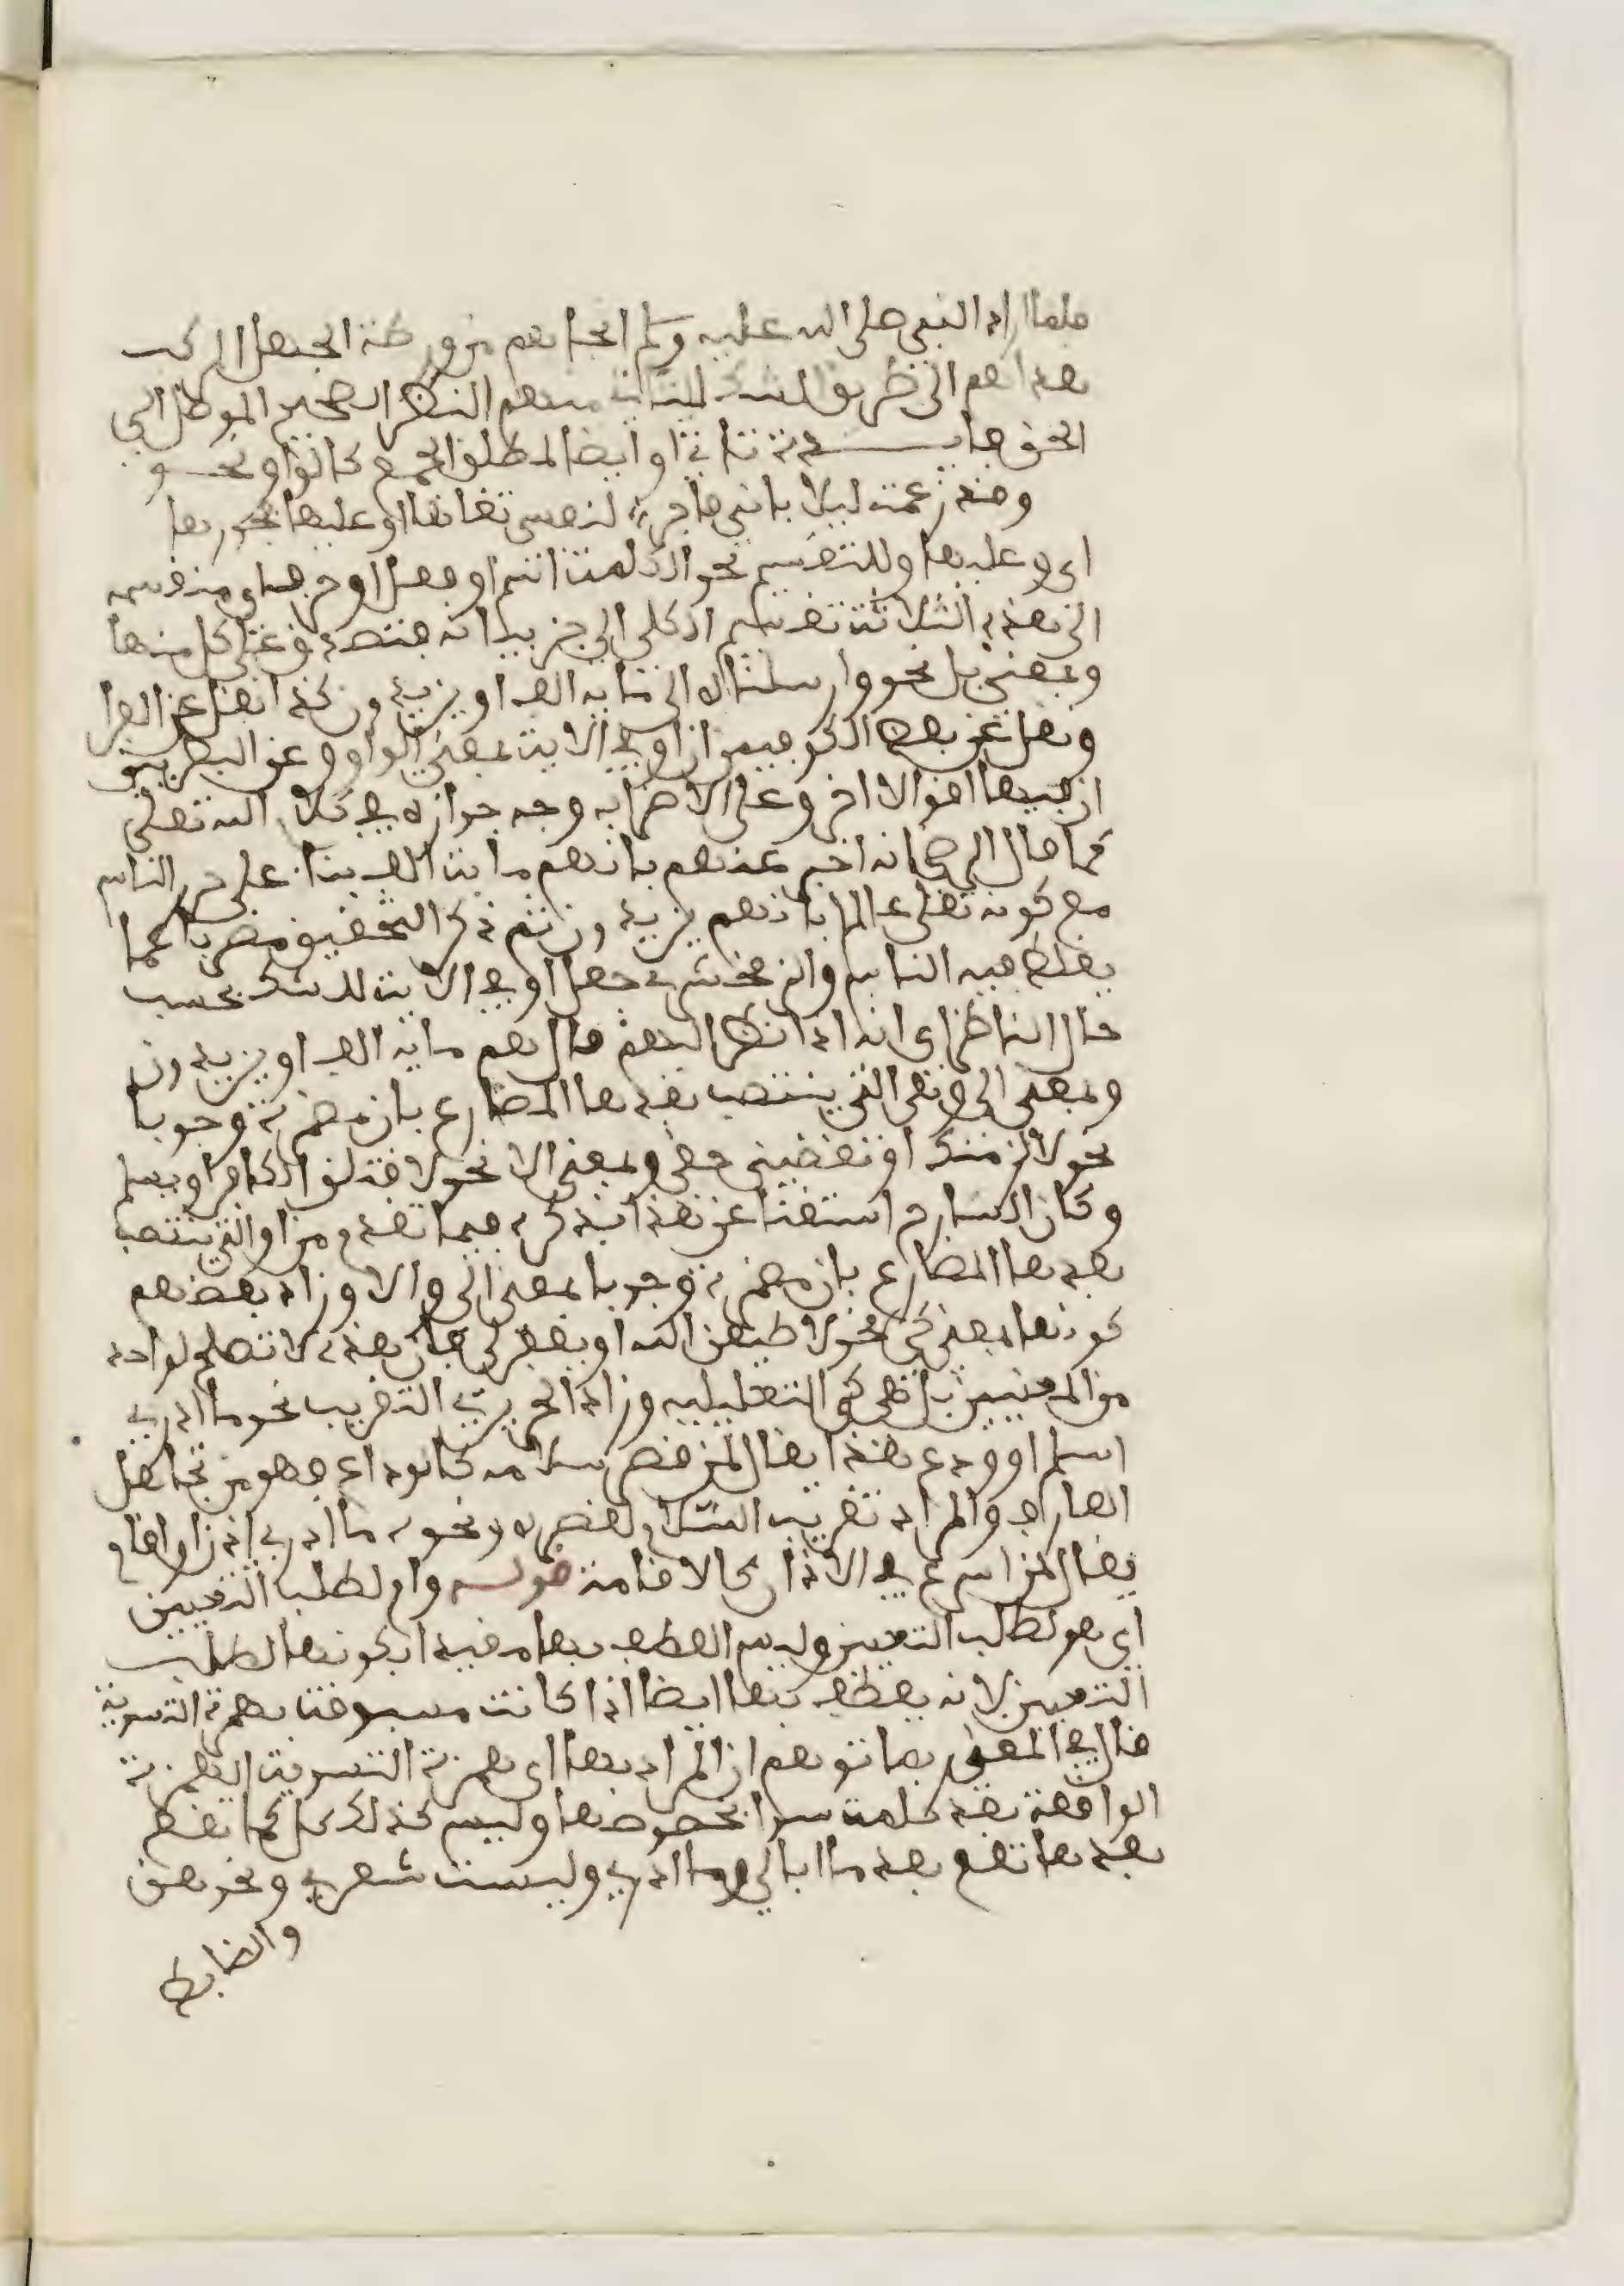 فلما اراد النبي صلى الله عليه وسلم انجاءهم من ورطة الجهل المركب
هداهم الى طريق الشك لينشأ منهم النظر الصحيح الموصل الى
الحق فا
وقد زعمت ليلى باني فاجر لنفسي تقاها او عليها فجورها
اى وعليها وللتقسيم نحو الكلمة اسم او فعل او حرف
الى هذه الثلاثة تقسيم الكلي الى جزءياته فتصدق على كل منها
وبمعنى بل نحو وارسلناه الى مائة الف او يزيدون كذا نقل عن الفرا
ونقل عن بعض الكوفيين ان او في الاية بمعنى الواو وعن البصريين
ان فيها اقوالا اخر وعلى الاضراب وجه جوازه في كلام الله تعلى
كما قال الرضى انه اخبر عنهم بانهم مائة الف بناء على حزر الناس
مع كونه تعلى عالما بانهم يزيدون ثم ذكر التحقيق مضربا عما
يغلط فيه الناس والزمخشري جعل او في الاية للشك بحسب
حال الناظر اى انه اذا نظر اليهم قال هم مائة الف او يزيدون
وبمعنى الى وهي التي ينتصب بعدها المضارع بان مضمرة وجوبا
نحو لالزمنك او تقضيني حقى وبمعنى الا نحو لاقتلن الكافر او يسلم
وكان الشارح استغنا عن هذا بذكره فيما تقدم من او التي ينتصب
بعدها المضارع بان مضمرة وجوبا بمعنى الى والا وزاد بعضهم
كونها بمعنى كي نحو لاطيعن الله او يغفر لي فان هذه لا تصلح لواحد
من المعنيين بل هي كي التعليلية وزاد الحريري التقريب نحو ما ادري
اسلم او ودع هذا يقال لمن قصر سلامه كالوداع فهو من تجاهل
العارف والمراد تقريب السلام لقصره ونحوه ما ادري اذن او اقام
يقال لمن اسرع في الاذان كالاقامة قوله وام لطلب التعيين
اي هو لطلب التعيين وليس العطف بها مقيدا بكونها لطلب
التعيين لانه يعطف بها ايضا اذا كانت مسبوقة بهمزة التسوية
قال في المغني ربما توهم ان المراد بها اى بهمزة التسوية الهمزة
الواقعة بعد كلمة سوا بخصوصها وليس كذلك بل كما تقع
بعدها تقع بعد ما ابالي وما ادري وليست شعري ونحوهن
والضابط